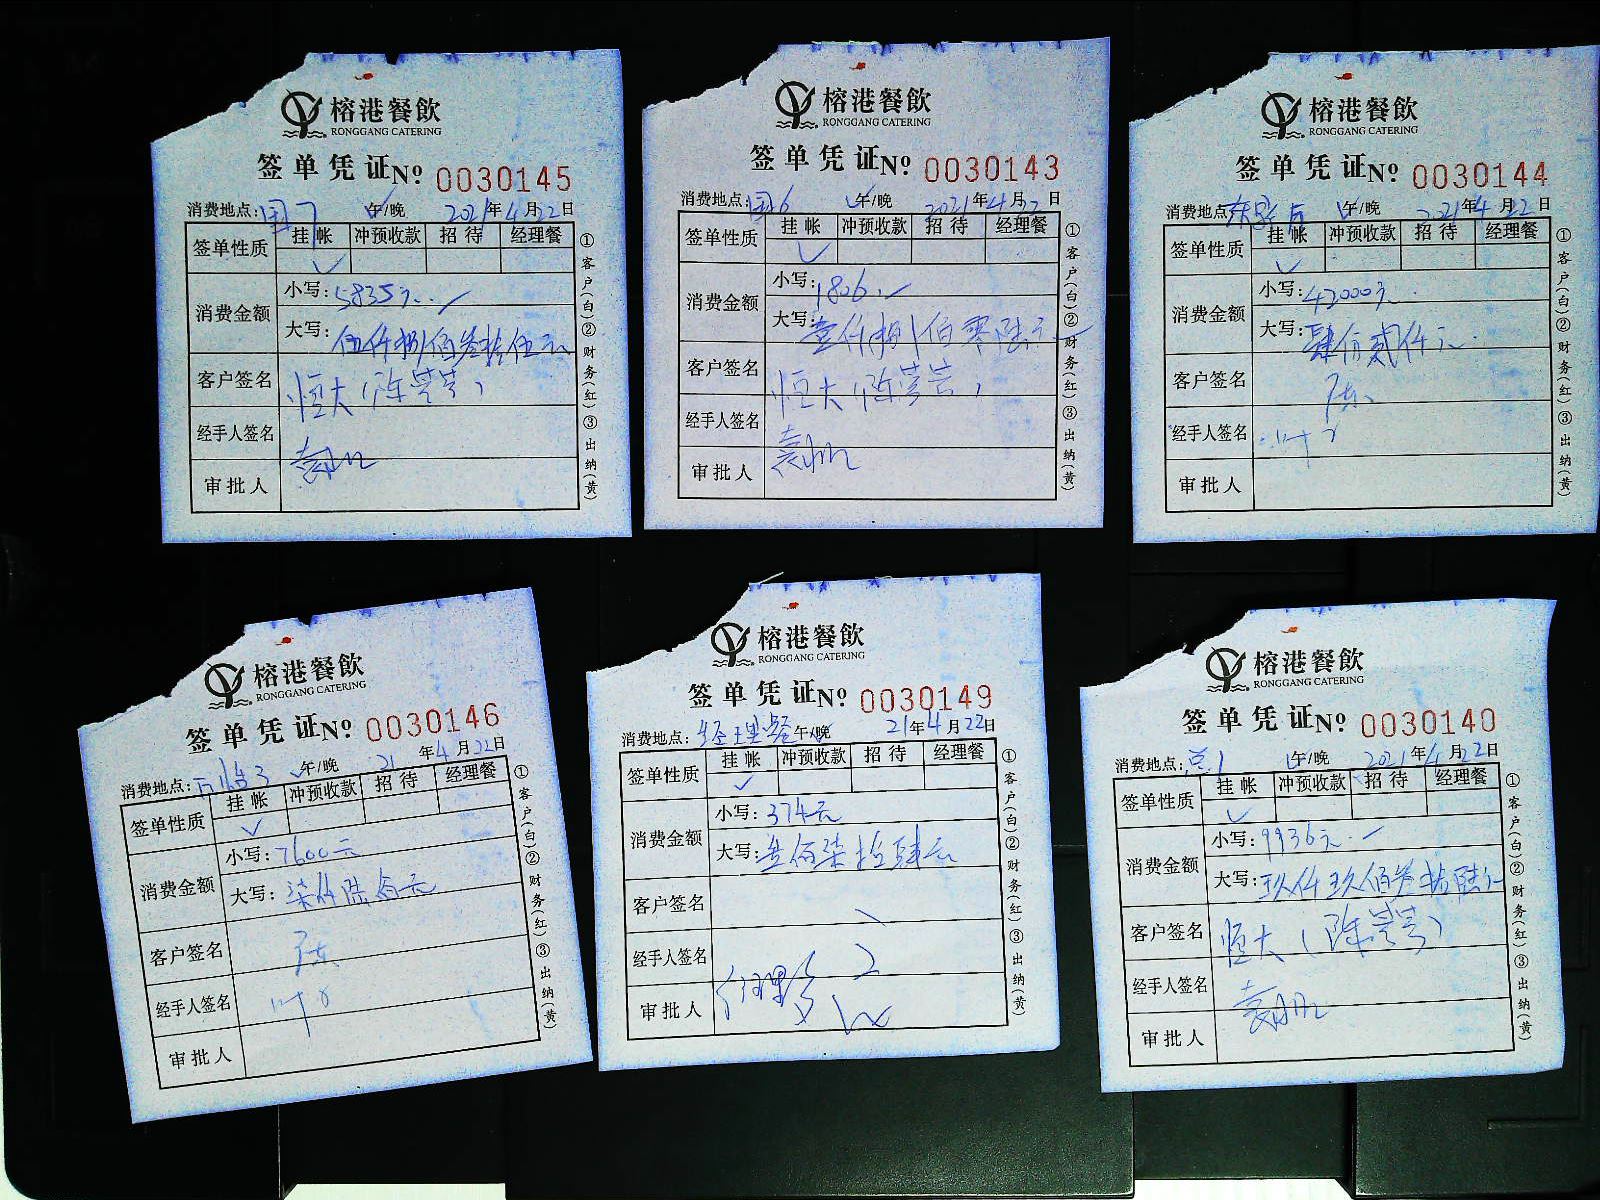 榕港餐飲
RONGGANG CATERING
签单凭证 № 0030145
消费地点: 国7 午/晚 2021年4月22日
签单性质 挂帐 冲预收款 招待 经理餐
消费金额 小写: 5835元
大写: 伍仟捌佰叁拾伍元
客户签名 恒大(陈
经手人签名
审批人
①客户(白)②财务(红)③出纳(黄)
榕港餐飲
RONGGANG CATERING
签单凭证 № 0030143
消费地点: 国6 午/晚 2021年4月22日
签单性质 挂帐 冲预收款 招待 经理餐
消费金额 小写: 1806
大写: 壹仟捌佰零陆元
客户签名 恒大(陈
经手人签名
审批人
①客户(白)②财务(红)③出纳(黄)
榕港餐飲
RONGGANG CATERING
签单凭证 № 0030144
消费地点: 午/晚 2021年4月22日
签单性质 挂帐 冲预收款 招待 经理餐
消费金额 小写: 42000元
大写: 肆万贰仟元
客户签名
经手人签名 叶
审批人
①客户(白)②财务(红)③出纳(黄)
榕港餐飲
RONGGANG CATERING
签单凭证 № 0030146
消费地点: 午/晚 21年4月22日
签单性质 挂帐 冲预收款 招待 经理餐
消费金额 小写: 7600元
大写: 柒仟陆佰元
客户签名
经手人签名 叶
审批人
①客户(白)②财务(红)③出纳(黄)
榕港餐飲
RONGGANG CATERING
签单凭证 № 0030149
消费地点: 经理餐 午/晚 21年4月22日
签单性质 挂帐 冲预收款 招待 经理餐
消费金额 小写: 374元
大写: 叁佰柒拾肆元
客户签名
经手人签名
审批人
①客户(白)②财务(红)③出纳(黄)
榕港餐飲
RONGGANG CATERING
签单凭证 № 0030140
消费地点: 总1 午/晚 2021年4月22日
签单性质 挂帐 冲预收款 招待 经理餐
消费金额 小写: 9936元
大写: 玖仟玖佰叁拾陆元
客户签名 恒大(陈
经手人签名
审批人
①客户(白)②财务(红)③出纳(黄)